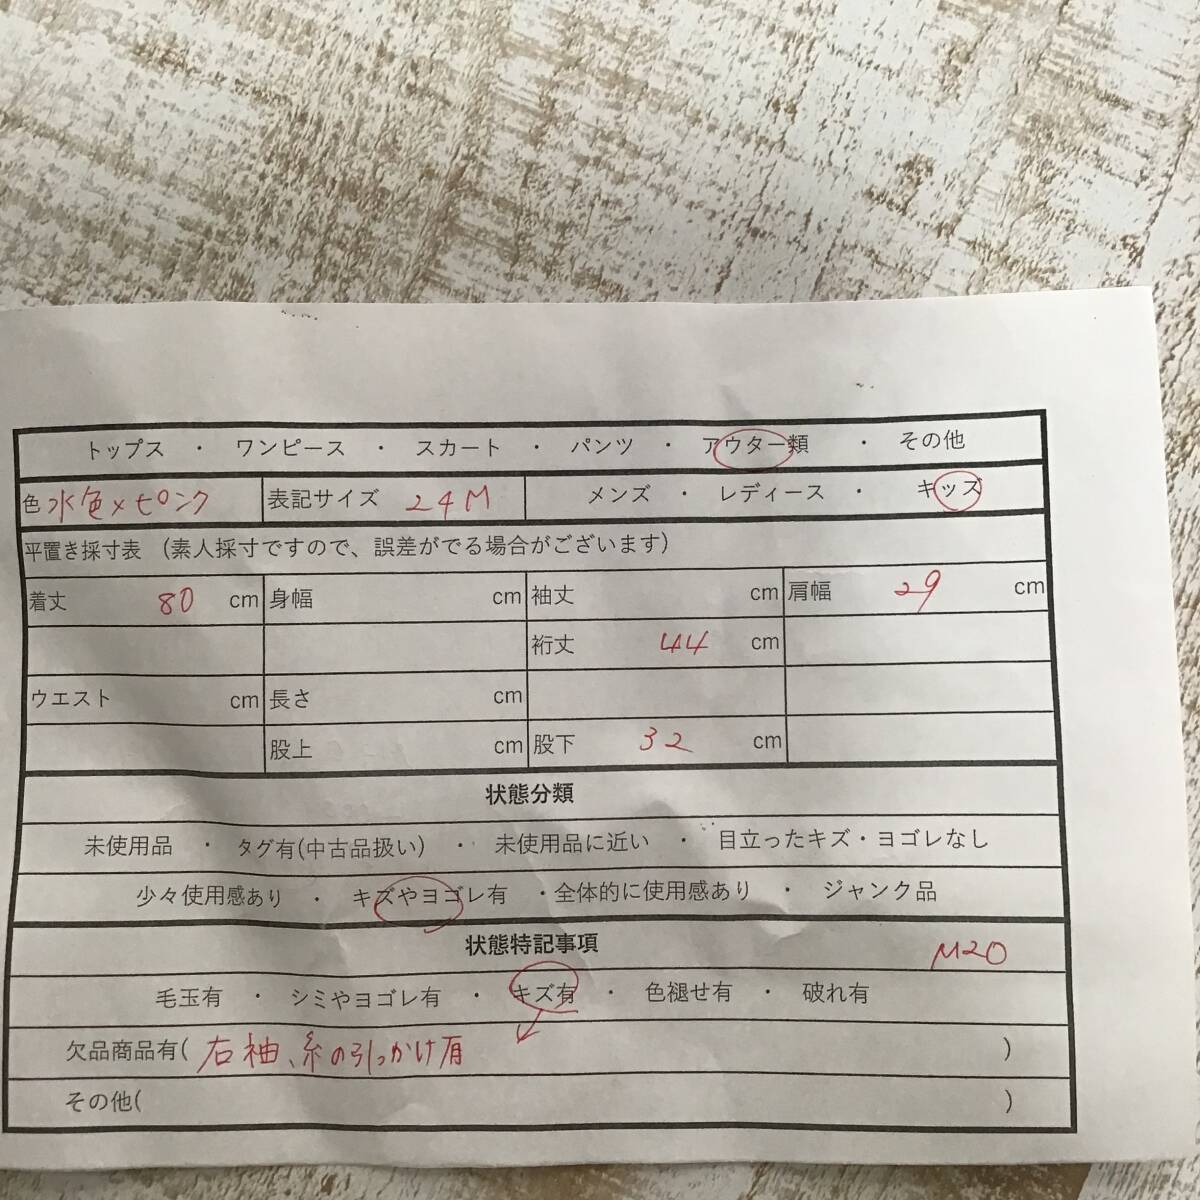 トップス ・ ワンピース ・ スカート ・ パンツ ・ アウター類 ・ その他
色 水色×ピンク 表記サイズ 24M メンズ ・ レディース ・ キッズ
平置き採寸表 (素人採寸ですので、誤差がでる場合がございます)
着丈 80 cm 身幅 cm 袖丈 cm 肩幅 29 cm
裄丈 44 cm
ウエスト cm 長さ cm
股上 cm 股下 32 cm
状態分類
未使用品 ・ タグ有(中古品扱い) ・ 未使用品に近い ・ 目立ったキズ・ヨゴレなし
少々使用感あり ・ キズやヨゴレ有 ・全体的に使用感あり ・ ジャンク品
状態特記事項 M20
毛玉有 ・ シミやヨゴレ有 ・ キズ有 ・ 色褪せ有 ・ 破れ有
欠品商品有( 右袖、糸の引っかけ有 )
その他( )